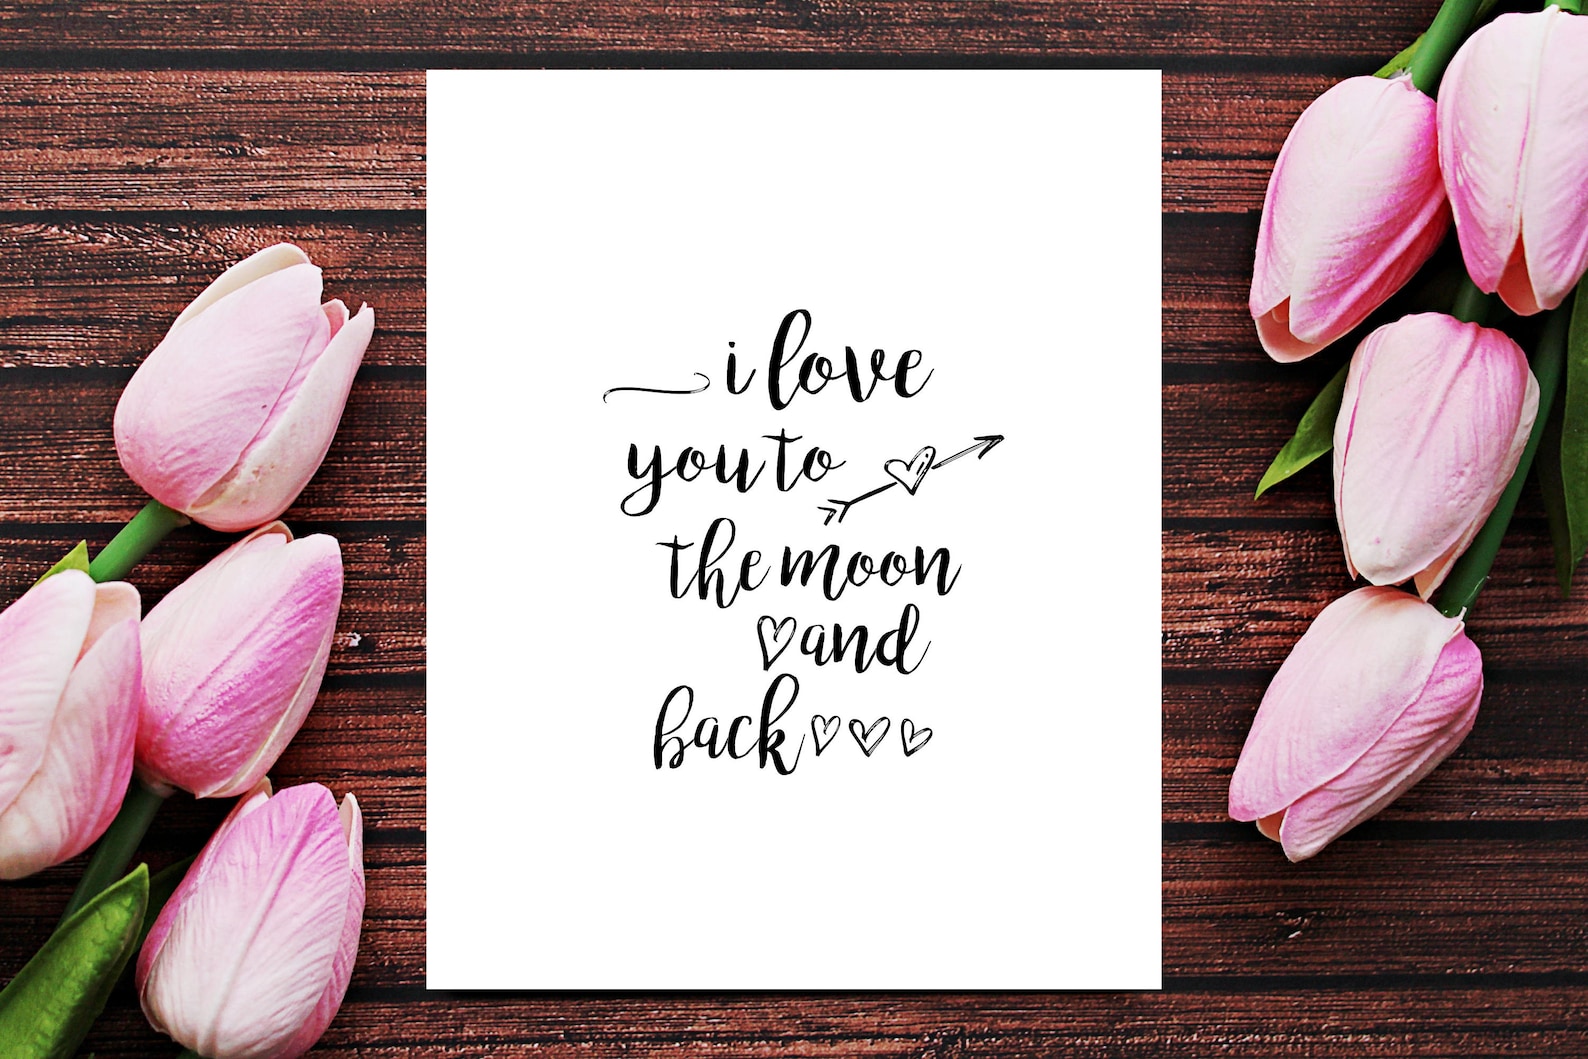 i love
you to
the moon
and
back